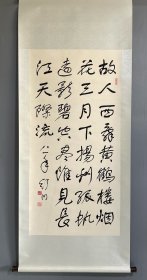 故人西辭黄鶴樓烟
花三月下揚州孤帆
遠影碧空盡唯見長
江天際流 八一年 舒同